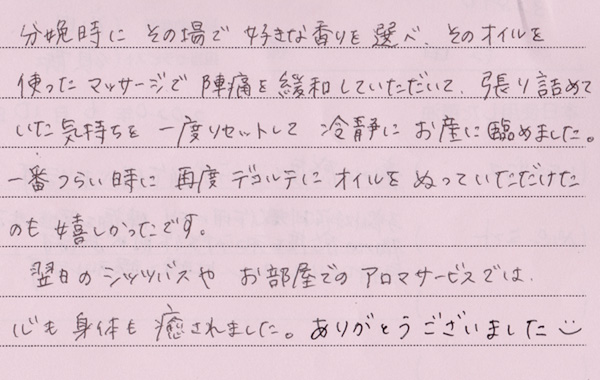 分娩時に その場で 好きな香りを 選べ、そのオイルを
使ったマッサージで 陣痛を緩和していただいて、張り詰めて
いた気持ちを 一度リセットして 冷静に お産に臨めました。
一番つらい時に 再度 デコルテに オイルを ぬっていただけた
のも 嬉しかったです。
翌日の シッツバスや お部屋での アロマサービスでは、
心も 身体も 癒されました。ありがとうございました